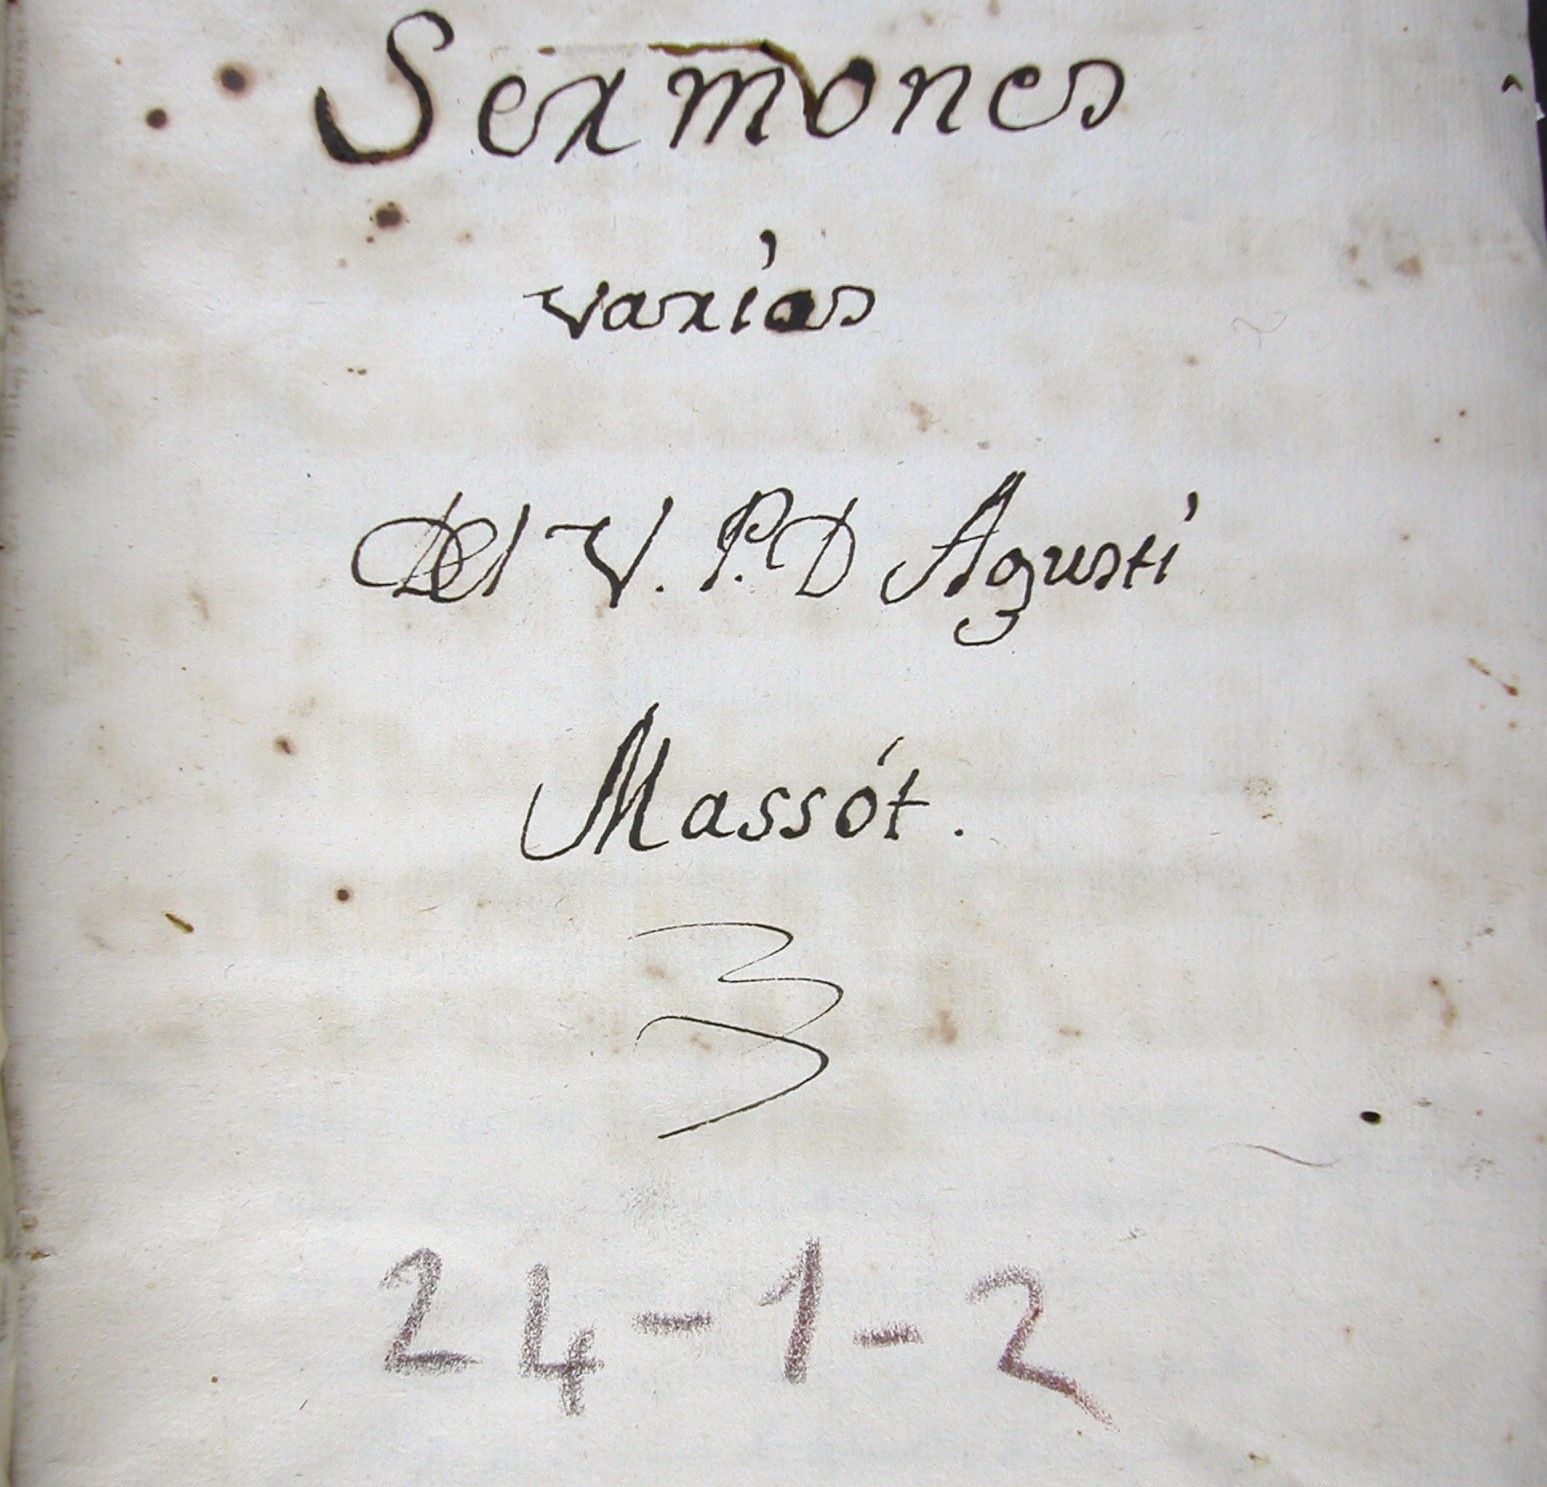 Sermones
varios
Del V. P. D Agustí
Massót.
24-1-2